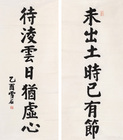 未出土時已有節
待淩雲日猶虛心